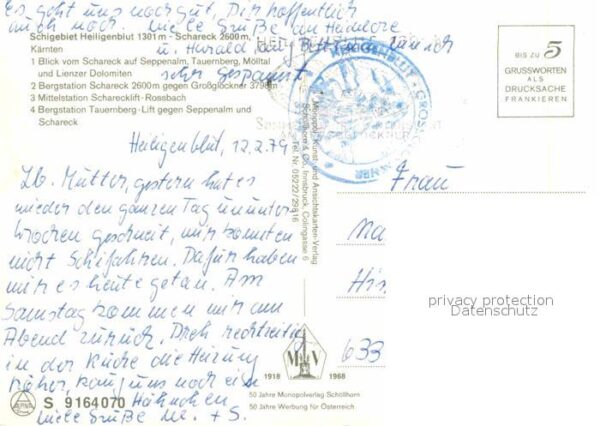 Es geht uns noch gut, Dir hoffentlich
auch noch. Viele Grüße an Heidelore
u. Harald,
sehr gespannt
Schigebiet Heiligenblut 1301 m - Schareck 2600 m,
Kärnten
1 Blick vom Schareck auf Seppenalm, Tauernberg, Mölltal
und Lienzer Dolomiten
2 Bergstation Schareck 2600 m gegen Großglockner 3798 m
3 Mittelstation Scharecklift-Rossbach
4 Bergstation Tauernberg-Lift gegen Seppenalm und
Schareck
BIS ZU 5
GRUSSWORTEN
ALS
DRUCKSACHE
FRANKIEREN
Heiligenblut, 12.2.79
Lb. Mutter, gestern hat es
wieder den ganzen Tag ununter-
brochen geschneit, wir konnten
nicht Schifahren. Dafür haben
wir es heute getan. Am
Samstag kommen wir am
Abend zurück. Dreh rechtzeitig
in der Küche die Heizung
höher, kauf uns noch ein
Hähnchen.
Viele Grüße
Monopol Kunst- und Ansichtskarten-Verlag
Schöllhorn & Co., Innsbruck, Colingasse 6
Tel. Nr. 05222/29816
Frau
633
privacy protection
Datenschutz
M V
1918 1968
50 Jahre Monopolverlag Schöllhorn
50 Jahre Werbung für Österreich
S 9164070